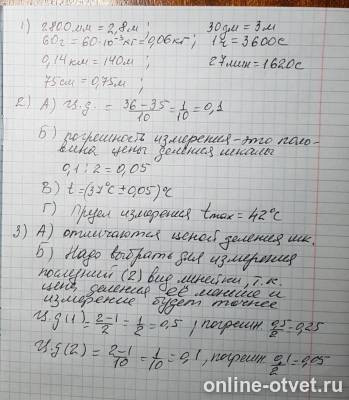 1) 2800мм = 2,8м; 30дм = 3м
60г = 60·10⁻³кг = 0,06кг; 1ч = 3600с
0,14км = 140м; 27мин = 1620с
75см = 0,75м;
2) А) Ц.д. = 36-35/10 = 1/10 = 0,1
Б) погрешность измерения - это поло-
вина цены деления шкалы
0,1 : 2 = 0,05
В) t = (37°С ± 0,05)°С
Г) Предел измерения tmax = 42°С
3) А) отличаются ценой деления шк.
Б) Надо выбрать для измерения
последний (2) вид линейки, т.к.
цена деления её меньше и
измерение будет точнее
Ц.д(1) = 2-1/2 = 1/2 = 0,5, погрешн. 0,5/2 = 0,25
Ц.д(2) = 2-1/10 = 1/10 = 0,1, погрешн. 0,1/2 = 0,05
online-otvet.ru